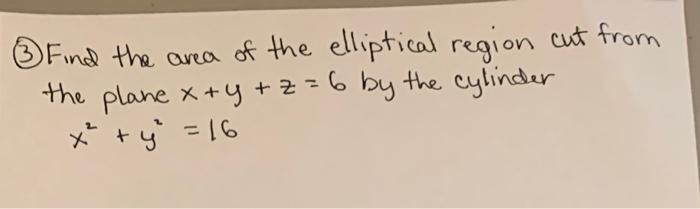 ③ Find the area of the elliptical region cut from
the plane x + y + z = 6 by the cylinder
x² + y² = 16